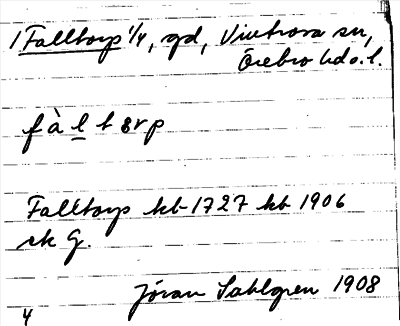 1 Falltorp 1/4, gd, Vintrosa sn,
Örebro hd o. l.
fà l t 8r p
Falltorp kb 1727 kb 1906
sk G.
Jöran Sahlgren 1908
4